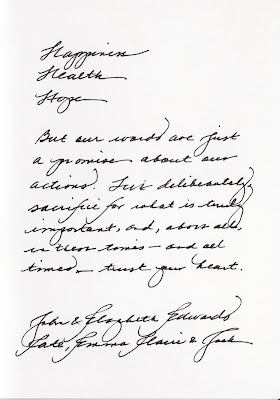 Happiness
Health
Hope
But our words are just
a promise about our
actions. Live deliberately,
sacrifice for what is truly
important, and, above all,
in these times – and all
times – trust your heart.
John & Elizabeth Edwards
Cate, Emma Claire & Jack